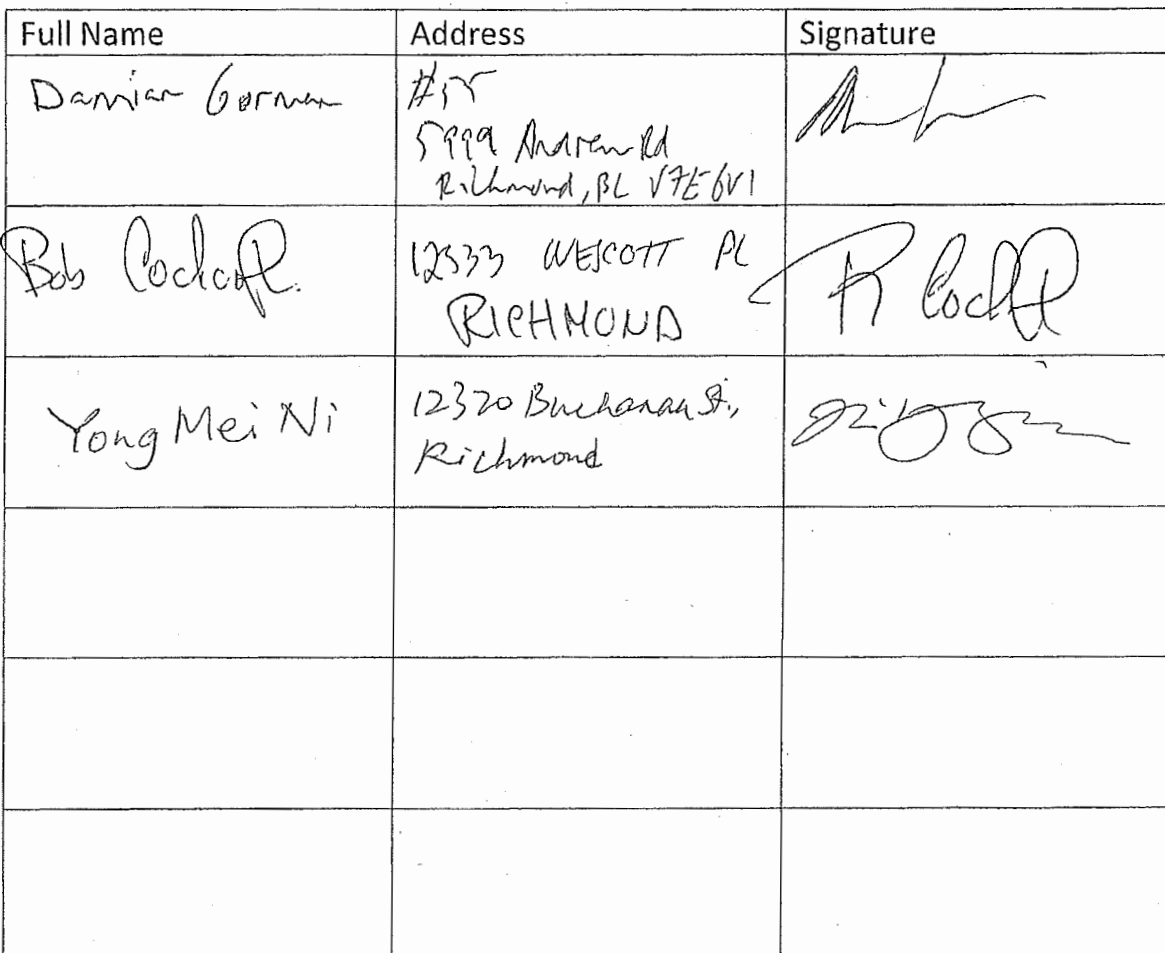 Full Name Address Signature
Damian Gorman
#55
5999 Andrew Rd
Richmond, BC V7E 6V1
Bob
12333 WESCOTT PL
RICHMOND
R
Yong Mei Ni
12320 Buchanan St.,
Richmond